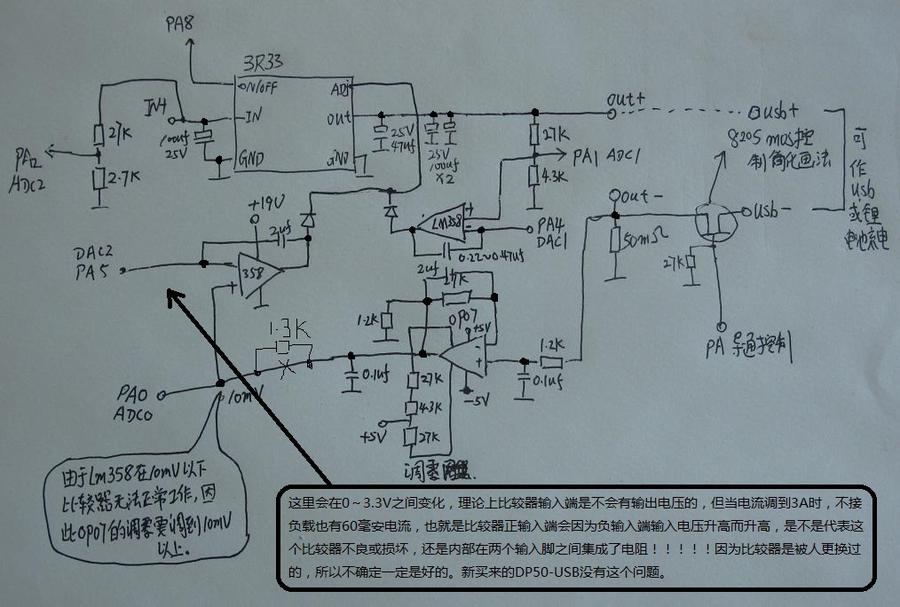 PA8
3R33
ON/OFF
Adj
IN+
IN
out
out+
usb+
27K
100uf
25V
25V
47uf
25V
100uf
X2
27K
8205 mos控
制简化画法
可
作
usb
或锂
电池充电
PA12
ADC2
2.7K
GND
GND
PA1 ADC1
4.3K
+19V
out-
usb-
2uf
LM358
PA4
DAC1
50mΩ
DAC2
PA5
358
0.22~0.47uf
27K
2uf
27K
1.2K
OP07
+5V
PA 导通控制
1.3K
1.2K
0.1uf
0.1uf
PA0
ADC0
10mV
27K
-5V
4.3K
+5V
27K
调零
由于Lm358在10mV以下
比较器无法正常工作,因
此OP07的调零要调到10mV
以上.
这里会在0~3.3V之间变化,理论上比较器输入端是不会有输出电压的,但当电流调到3A时,不接
负载也有60毫安电流,也就是比较器正输入端会因为负输入端输入电压升高而升高,是不是代表这
个比较器不良或损坏,还是内部在两个输入脚之间集成了电阻!!!!!因为比较器是被人更换过
的,所以不确定一定是好的。新买来的DP50-USB没有这个问题。